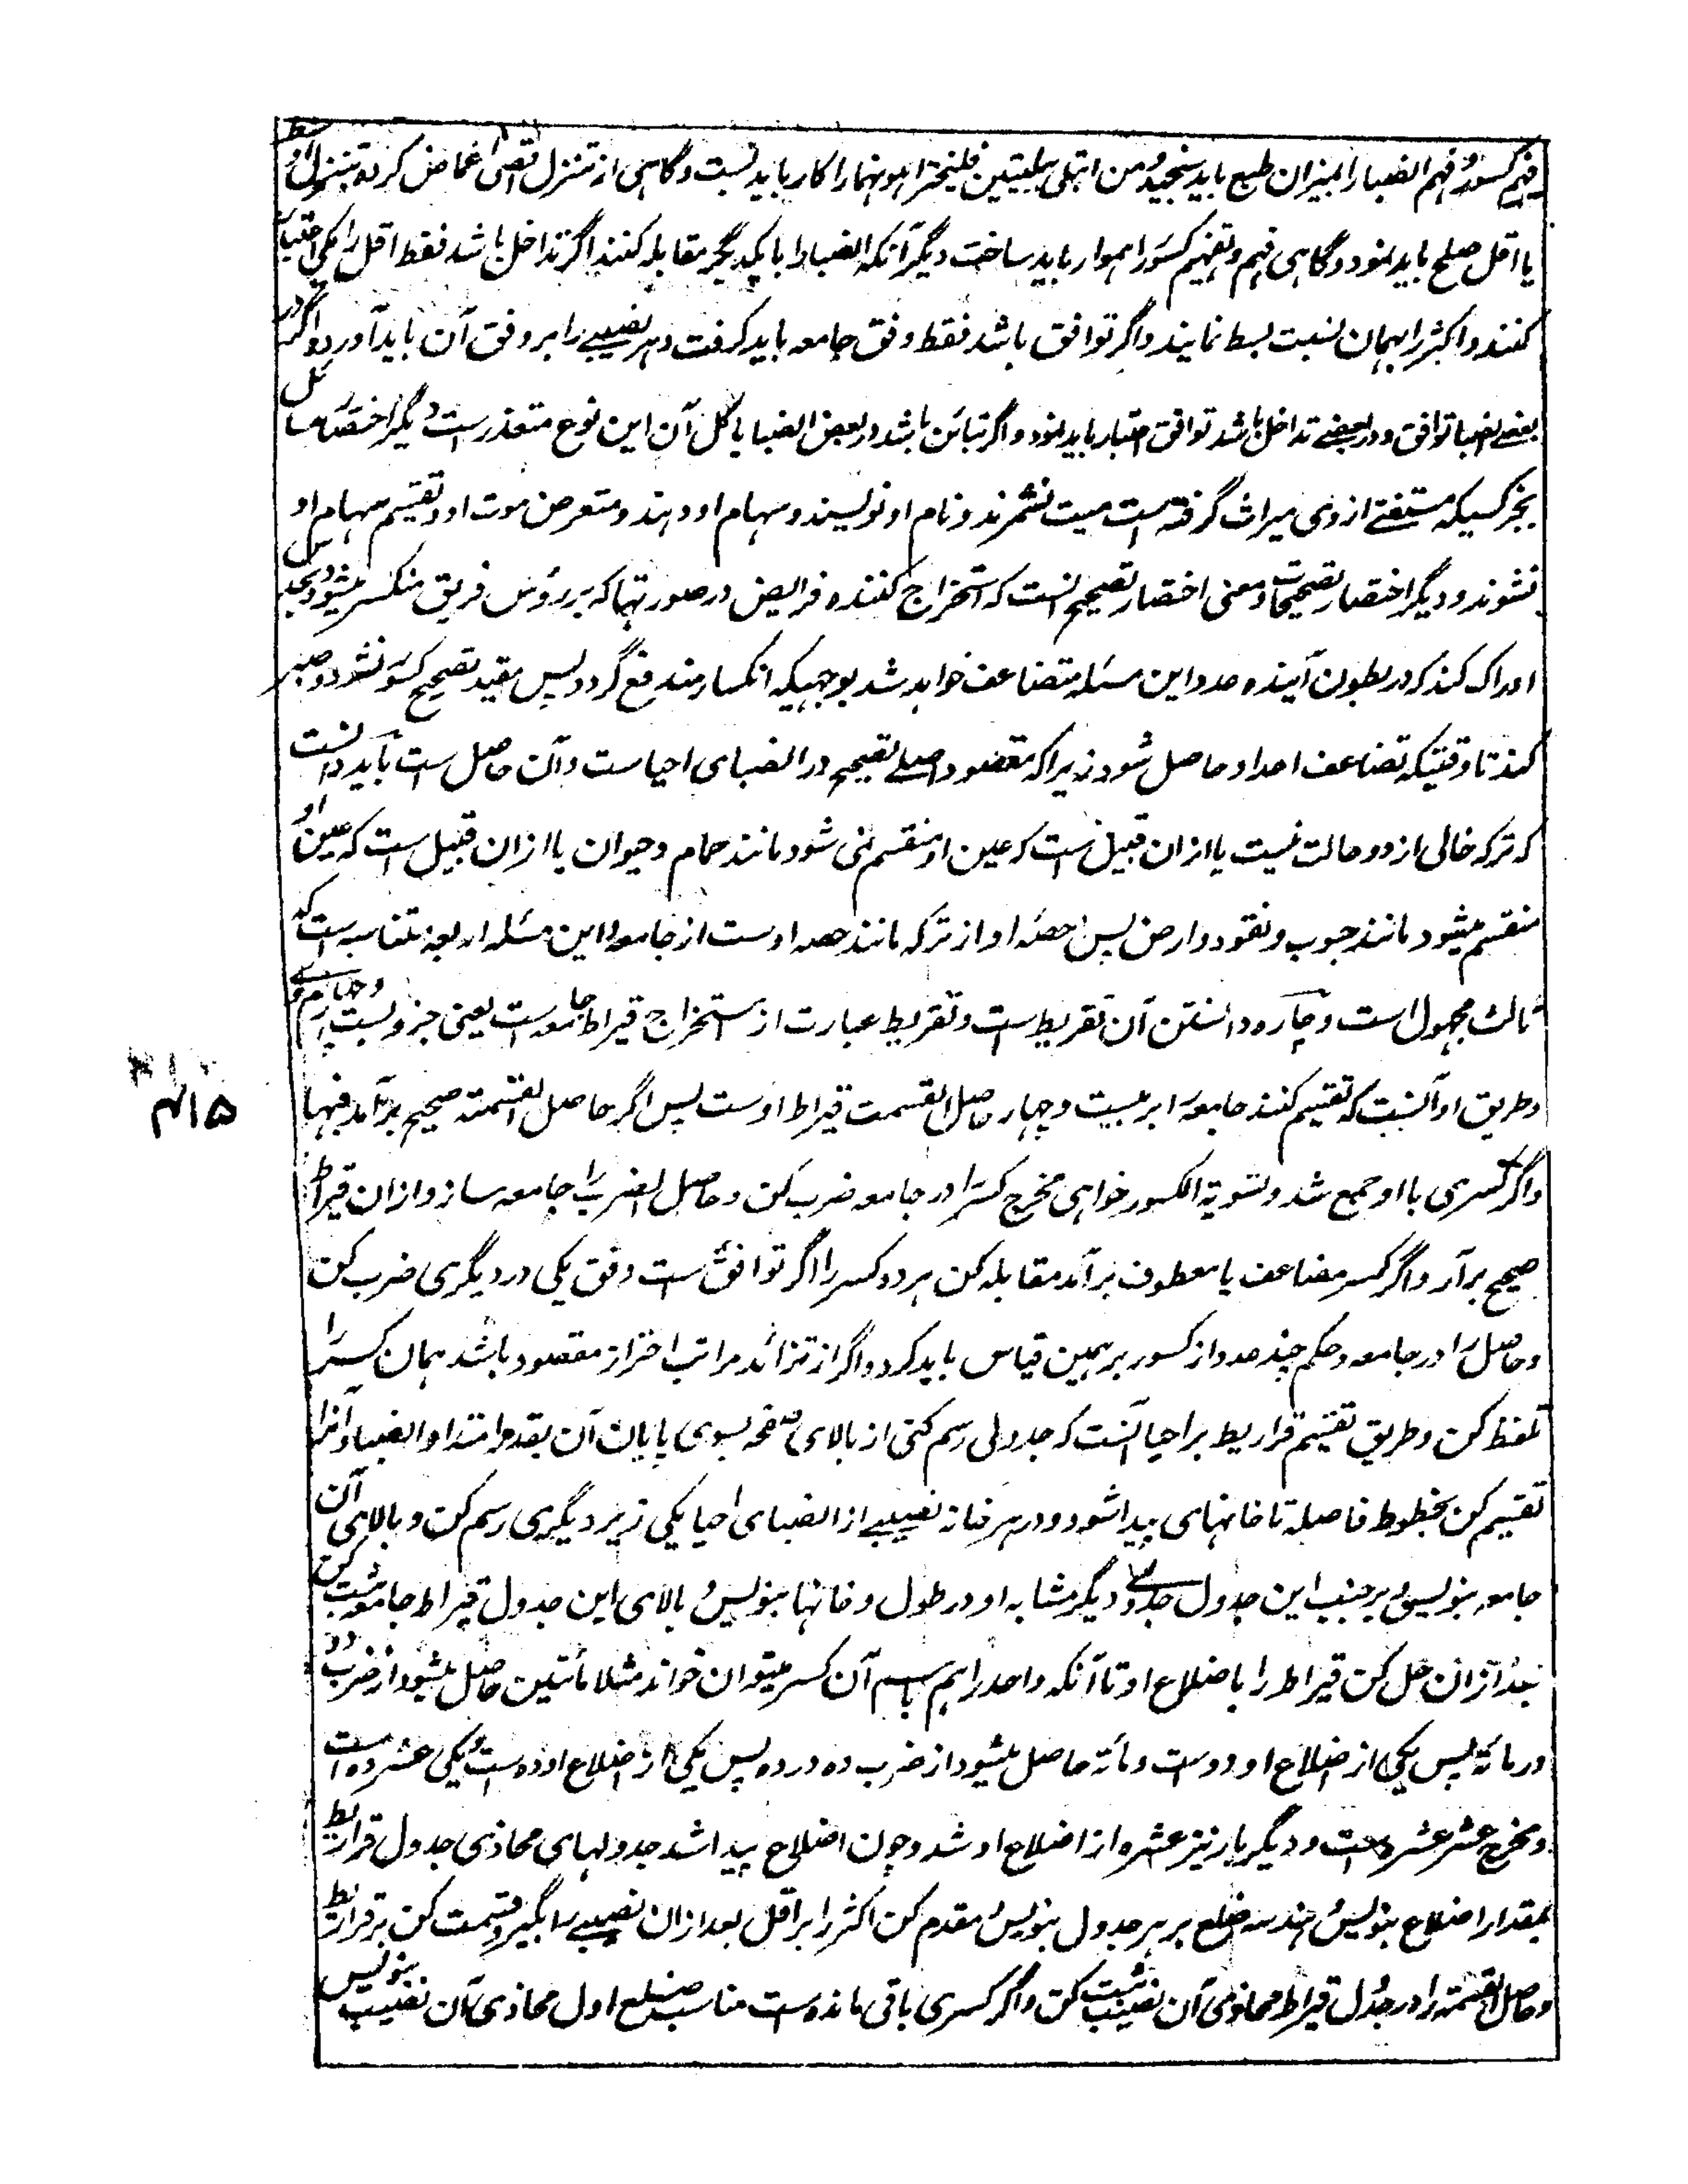 فهم کسور و فهم انصبا را بمیزان طبع باید سنجید و من ابتلی ببلیتین فلیختر اهونهما را کار باید بست و گاهی از تنزل اقصی اغماض کرده بتنزل اوسط
یا اقل صلح باید نمود و گاهی فهم و تفهیم کسور را هموار باید ساخت دیگر آنکه انصبا را با یکدیگر مقابله کنند اگر تداخل باشد فقط اقل را یکی اعتبار
کنند و اکثر را بهمان نسبت بسط نمایند و اگر توافق باشد فقط وفق جامعه باید گرفت و هر نصیبے را بر وفق آن باید آورد و اگر در
بعضے انصبا توافق و در بعضے تداخل باشد توافق اعتبار باید نمود و اگر تباین باشد در بعض انصبا یا کل آن این نوع متعذر است و دیگر اختصار مسائل
بجز کسیکه مستفتے از وی میراث گرفته است میت نشمرند و نام او نویسند و سهام او دهند و متعرض موت او و تقسیم سهام او
نشوند و دیگر اختصار تصحیحات و معنی اختصار تصحیح آنست که استخراج کننده فرایض در صورتها که بر رؤس فریق منکسر میشود و بحدس
ادراک کند که در بطون آینده عدد این مسئله متضاعف خواهد شد بوجهیکه انکسار مندفع گردد پس مقید تصحیح کسور نشود و صبر
کند تا وقتیکه تضاعف اعداد حاصل شود زیرا که مقصود اصلے تصحیح در انصبای احیاست و آن حاصل است باید دانست
که ترکه خالی از دو حالت نیست یا ازان قبیل است که عین او منقسم نمی شود مانند حمام و حیوان یا ازان قبیل است که عین او
منقسم میشود مانند حبوب و نقود و ارض پس حصه او از ترکه مانند حصه اوست از جامعه و این مسئله اربعه متناسبه است که
ثالث مجهول است و چاره دانستن آن تقریط است و تقریط عبارت از استخراج قیراط جامعه است یعنی جزو بست و چهارم وے
و طریق او آنست که تقسیم کنند جامعه را بر بیست و چهار حاصل القسمت قیراط اوست پس اگر حاصل القسمته صحیح برآمد فبها
و اگر کسری با او جمع شد و تسویة الکسور خواهی مخرج کسر را در جامعه ضرب کن و حاصل الضرب را جامعه ساز و ازان قیراط
صحیح برآر و اگر کسر مضاعف یا معطوف برآمد مقابله کن هر دو کسر را اگر توافق است وفق یکی در دیگری ضرب کن
و حاصل را در جامعه و حکم چند عدد از کسور برهمین قیاس باید کرد و اگر از تزائد مراتب احتراز مقصود باشد همان کسر را
تلفظ کن و طریق تقسیم قراریط بر احیا آنست که جدولی رسم کنی از بالای صفحه بسوی پایان آن بقدر امتداد انصبا و آنرا
تقسیم کن بخطوط فاصله تا خانهای پیدا شود و در هر خانه نصیبے از انصبای احیا یکی زیر دیگری رسم کن و بالای آن
جامعه بنویس و بر جنب این جدول جدولے دیگر مشابه او در طول و خانها بنویس و بالای این جدول قیراط جامعه ثبت کن
بعد ازان حل کن قیراط را باضلاع او تا آنکه واحد را هم باسم آن کسر میتوان خواند مثلا مأتین حاصل میشود از ضرب دو
در مائة پس یکی از اضلاع او دو است و مائة حاصل میشود از ضرب ده در ده پس یکی از اضلاع او ده است و یکی عشر ده است
و مخرج عشر عشره است و دیگر بار نیز عشره از اضلاع او شد و چون اضلاع پیدا شد جدولهای محاذی جدول قراریط
بمقدار اضلاع بنویس و هندسه ضلع بر هر جدول بنویس و مقدم کن اکثر را بر اقل بعد ازان نصیبے را بگیر و قسمت کن بر قراریط
و حاصل القسمته را در جدول قیراط محاذی آن نصیب ثبت کن و اگر کسری باقی مانده است مناسب ضلع اول محاذی آن نصیب بنویس
۴۱۵